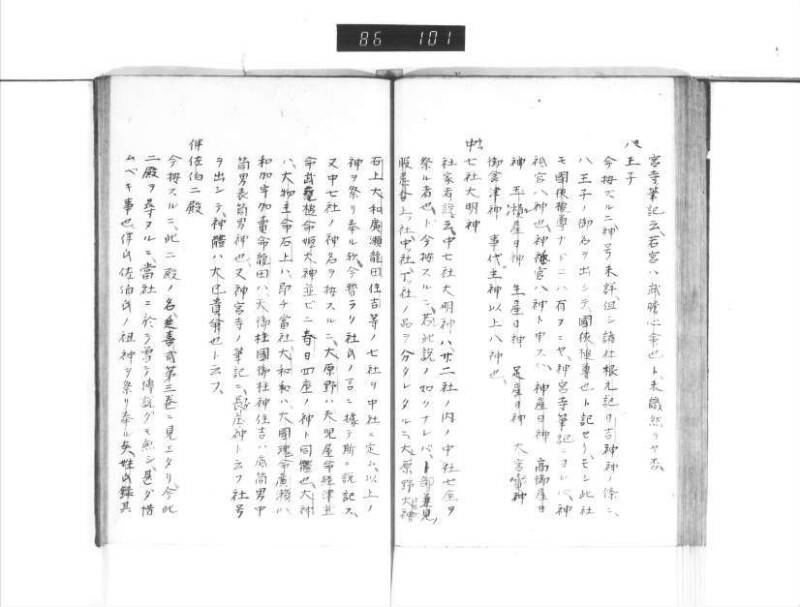 86 101
宮寺筆記云若宮ハ武
八王子
今按スルニ神号未詳但シ諸社根元記日吉神神ノ條ニ
八王子ノ御名ヲ出シテ國狹槌尊也ト記セリモシ此社
モ國狹槌尊ナドニハ有ヲニヤ神宮寺筆記ニヨレバ神
祇官八神也神祇官八神ト申スハ神産日神 高御産日
神 玉積産日神 生産日神 足産日神 大宮賣神
御食津神 事代主神以上八神也
中七社大明神
社家者説云中七社大明神ハ廿二社ノ内ノ中社七座ヲ
祭ル者也ト今按スルニ若此説ノ如クナレバト部兼見
上社中社下社ノ品ヲ分タレタルニ大原野大神
石上大和廣瀬龍田住吉等ノ七社リ中社ニ定ム以上ノ
神ヲ祭リ奉ル欤今暫ラク社氏ノ言ニ據テ斯ニ説記ス
又中七社ノ神名ヲ按スルニ大原野ハ天児屋命経津主
命武甕槌命姫大神並ビニ春日四座ノ神ト同體也大神
ハ大物主命石上ハ即チ當社大和ハ大國魂命廣瀬ハ
和加宇加賣命龍田ハ天御柱國御柱神住吉ハ底筒男中
筒男表筒男神也又神宮寺ノ筆記ニ長屋神ト云フ社号
ヲ出シテ神體ハ大巳貴命也ト云フ
伴佐伯二殿
今按スルニ此二殿ノ名延喜式第三巻ニ見エタリ今此
二殿ヲ尋ヌルニ當社ニ於テ專テ傳説グモ無シ甚ダ惜
ムベキ事也伴氏佐伯氏ノ祖神ヲ祭リ奉ル矣姓氏録其